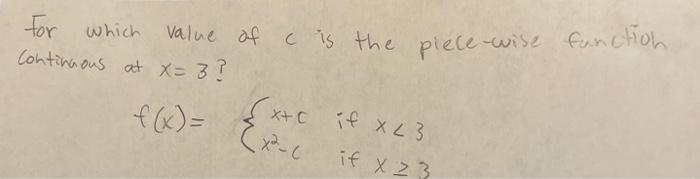 For which value of c is the piece-wise function
Continuous at x = 3?
f(x) = { x+c if x < 3
x²-c if x ≥ 3